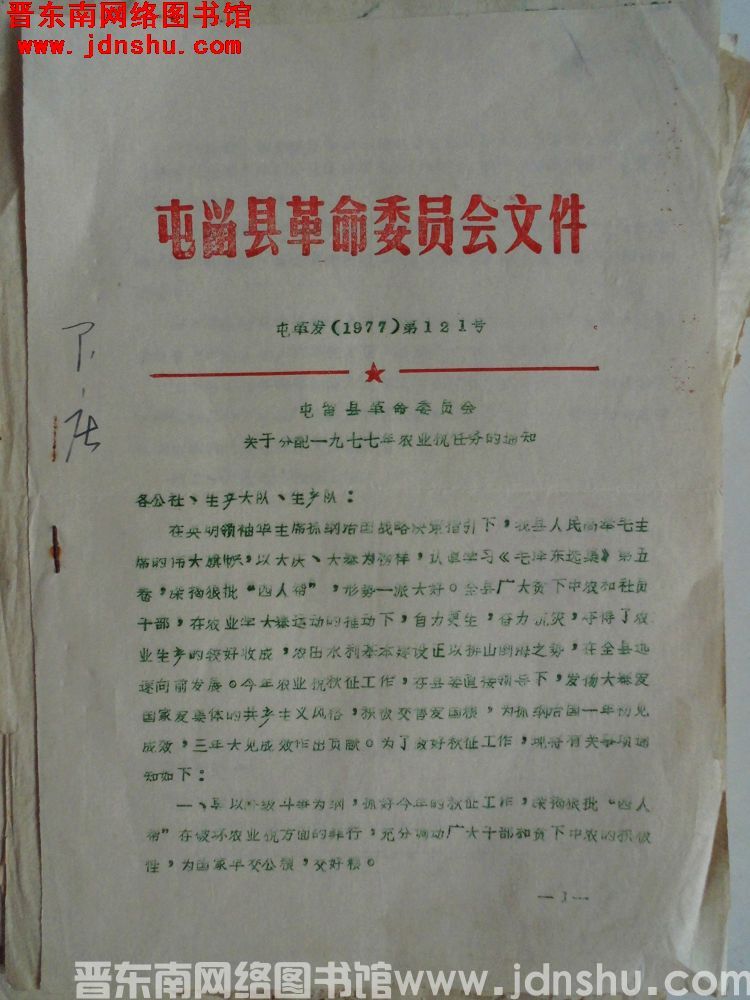 晋东南网络图书馆
www.jdnshu.com
晋东南网络图书馆
www.jdnshu.com
屯留县革命委员会文件
屯革发(1977)第121号
屯留县革命委员会
关于分配一九七七年农业税任务的通知
各公社、生产大队、生产队：
在英明领袖华主席抓纲治国战略决策指引下，我县人民高举毛主
席的伟大旗帜，以大庆、大寨为榜样，认真学习《毛泽东选集》第五
卷，深揭狠批“四人帮”，形势一派大好。全县广大贫下中农和社员
干部，在农业学大寨运动的推动下，自力更生，奋力抗灾，夺得了农
业生产的较好收成，农田水利基本建设正以排山倒海之势，在全县迅
速向前发展。今年农业税秋征工作，在县委直接领导下，发扬大寨爱
国家爱集体的共产主义风格，积极交售爱国粮，为抓纲治国一年初见
成效，三年大见成效作出贡献。为了做好秋征工作，现将有关事项通
知如下：
一、要以阶级斗争为纲，抓好今年的秋征工作，深揭狠批“四人
帮”在破坏农业税方面的罪行，充分调动广大干部和贫下中农的积极
性，为国家早交公粮，交好粮。
—3—
晋东南网络图书馆www.jdnshu.com